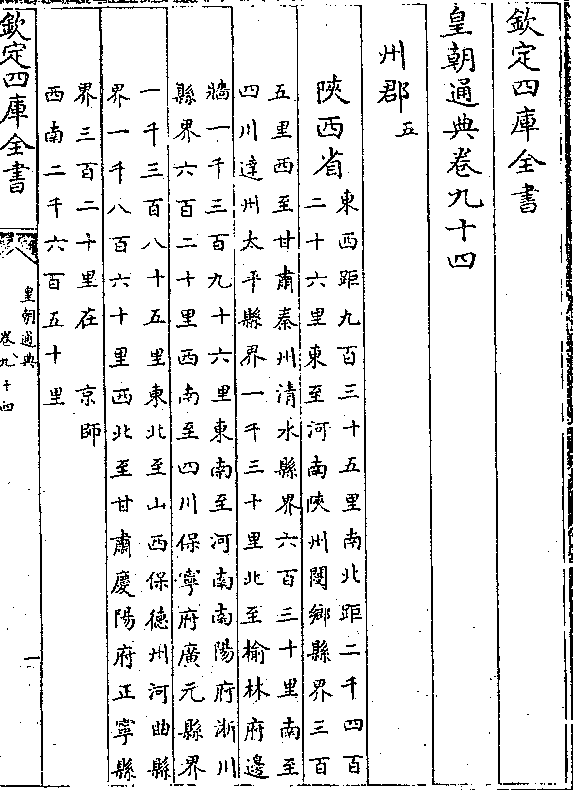 欽定四庫全書
皇朝通典卷九十四
州郡五
陝西省
東西距九百三十五里南北距二千四百
二十六里東至河南陝州閿鄉縣界三百
五里西至甘肅秦州清水縣界六百三十里南至
四川達州太平縣界一千三十里北至榆林府邊
牆一千三百九十六里東南至河南南陽府淅川
縣界六百二十里西南至四川保寧府廣元縣界
一千三百八十五里東北至山西保德州河曲縣
界一千八百六十里西北至甘肅慶陽府正寧縣
界三百二十里在 京師
西南二千六百五十里
欽定四庫全書
皇朝通典
卷九十四
一